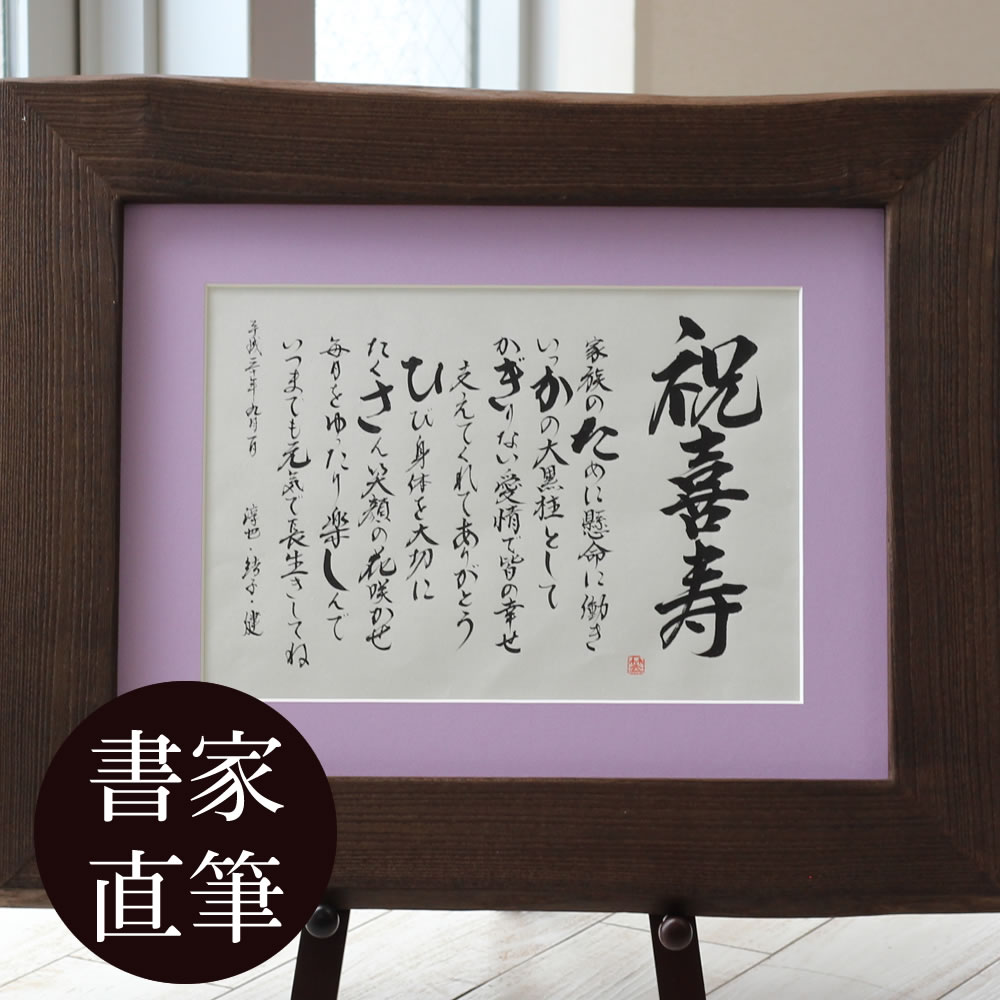 祝喜寿
家族のために懸命に働き
いっかの大黒柱として
かぎりない愛情で皆の幸せ
支えてくれてありがとう
ひび身体を大切に
たくさん笑顔の花咲かせ
毎日をゆったり楽しんで
いつまでも元気で長生きしてね
書家
直筆